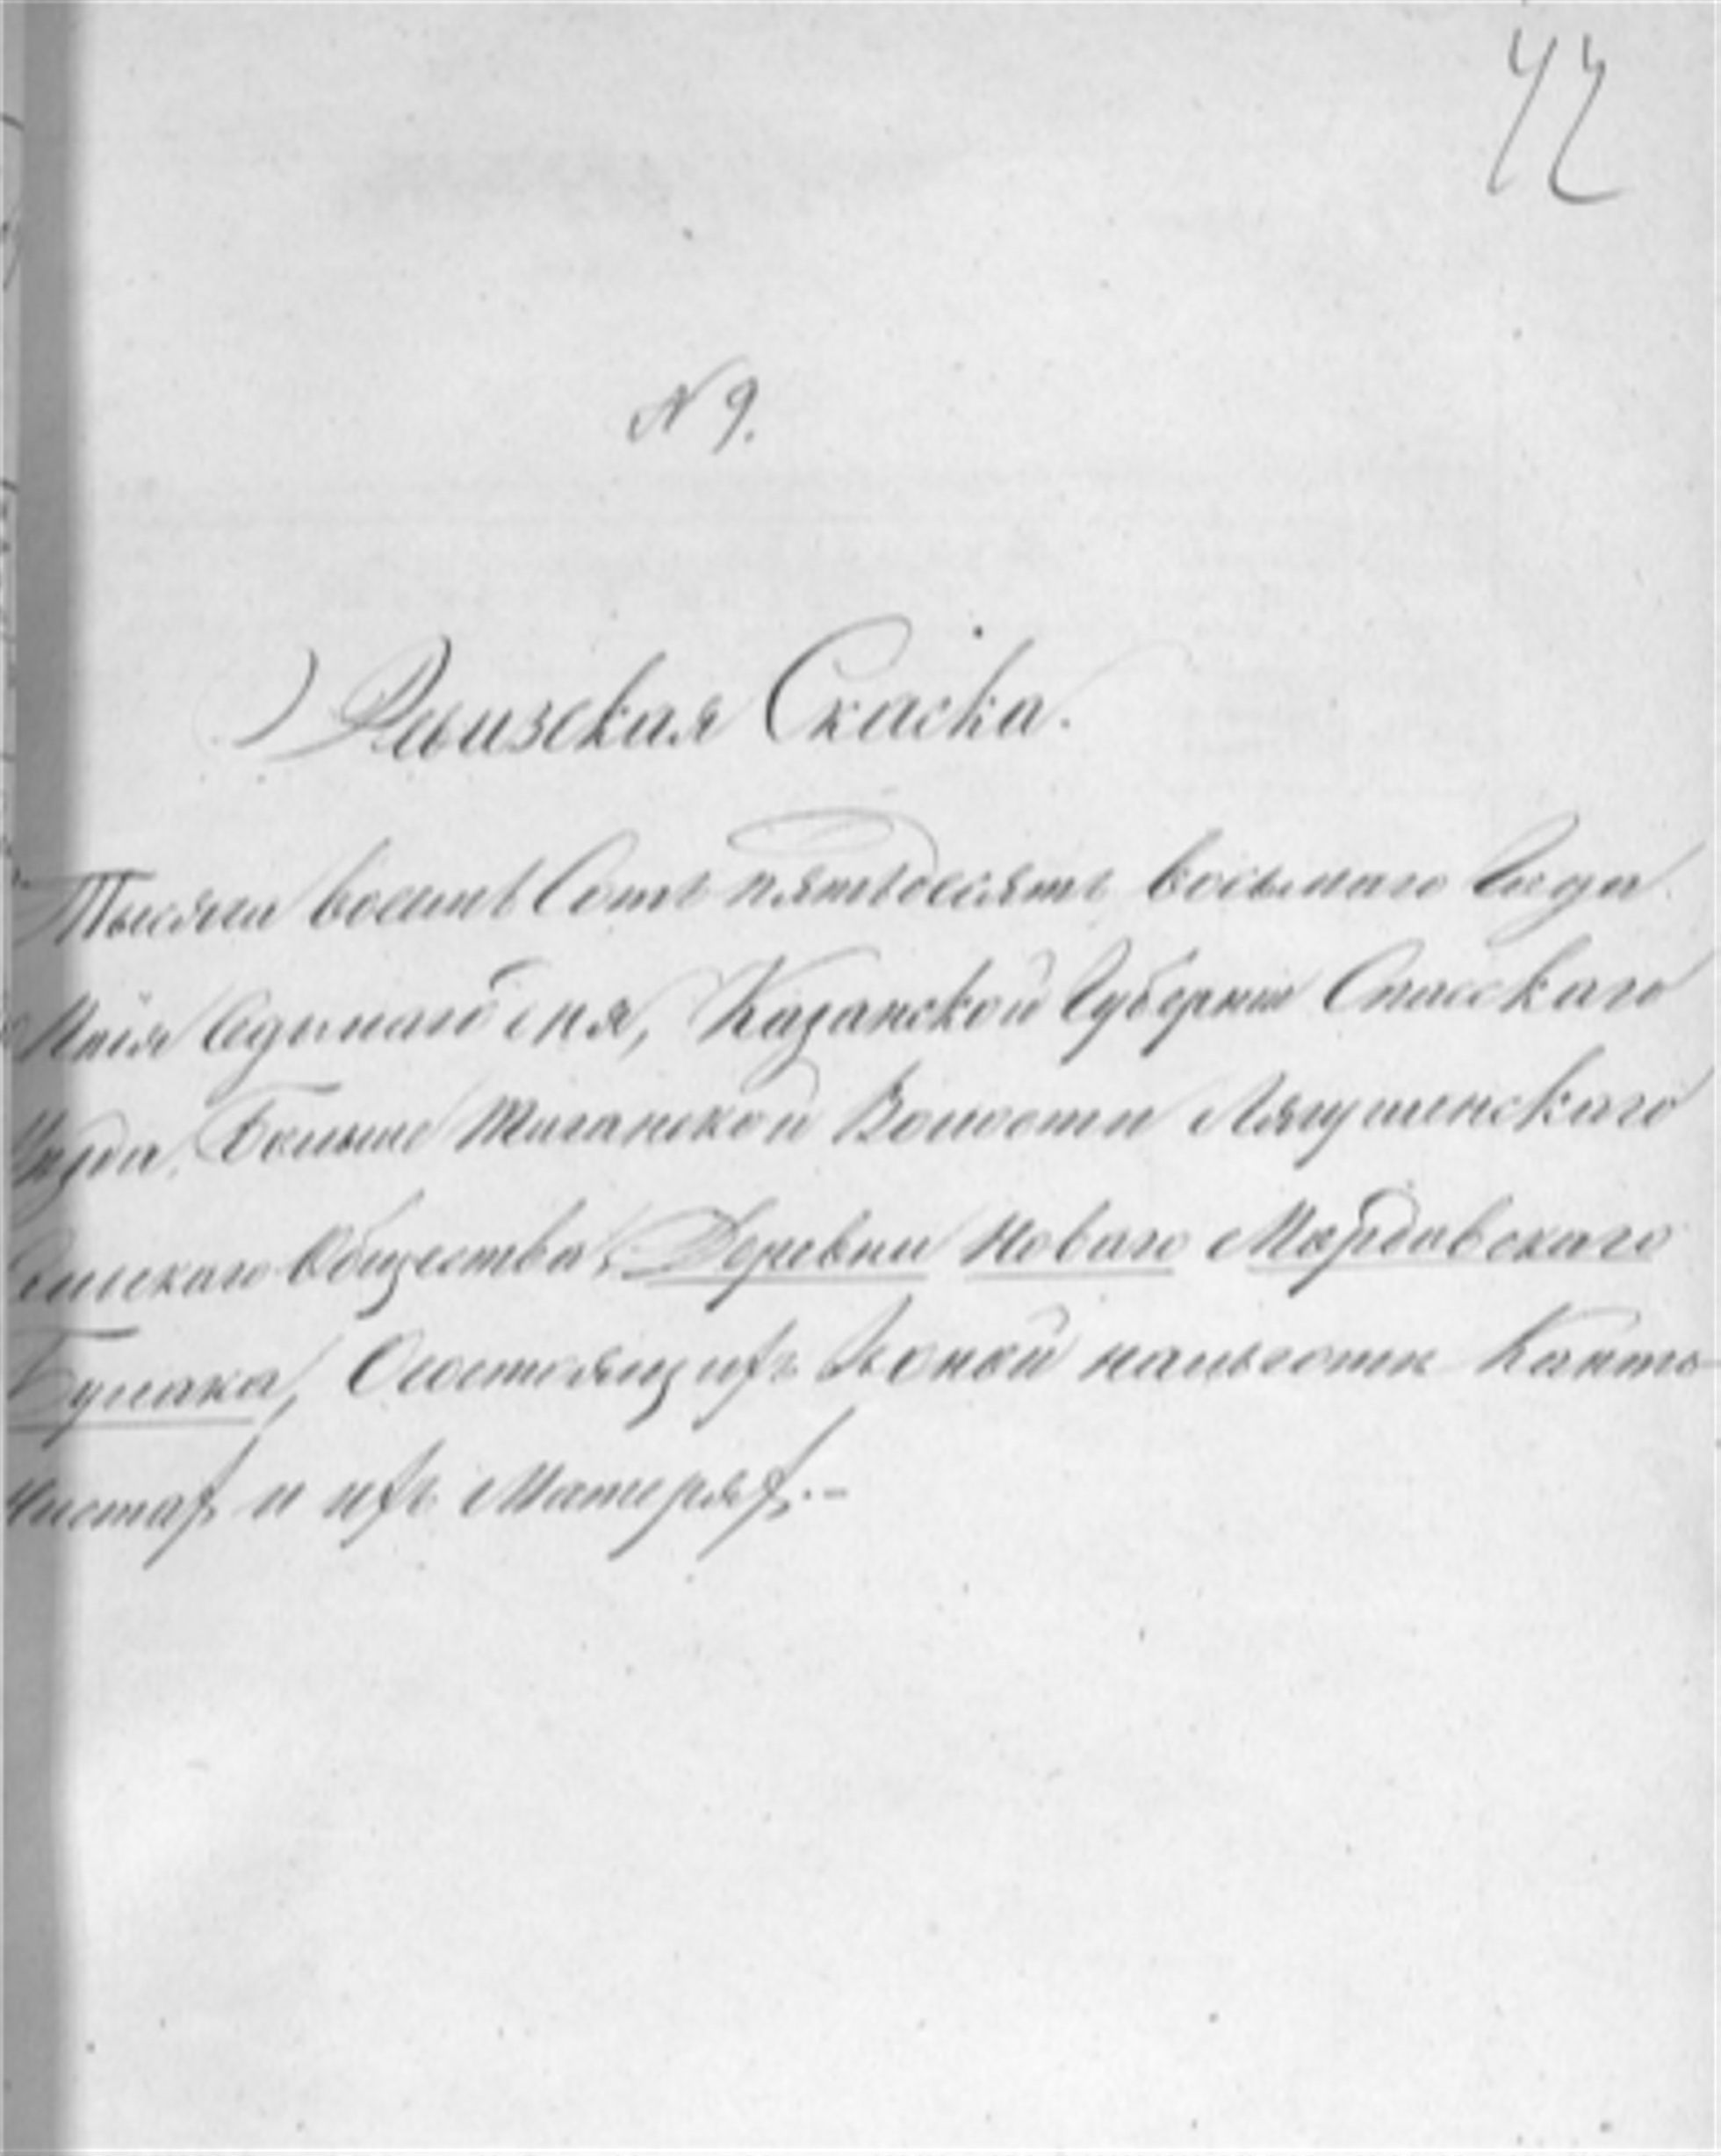 42
N 9.
Ревизская Скаска.
Тысяча восемь Сотъ пятьдесятъ восьмаго Года
Маія Седьмаго дня, Казанской Губерніи Спасскаго
Уѣзда, Больше Тиганской Волости Лягушенскаго
Сельскаго Общества, Деревни Новаго Мордовскаго
Булака, О состоящихъ нальготѣ Канто-
нистах и ихъ Матерях.-